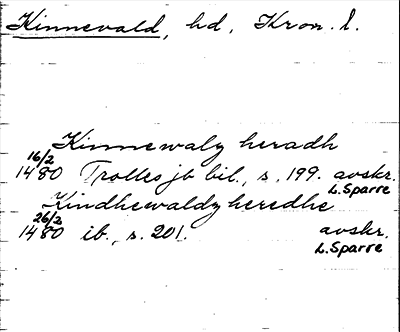 Kinnevald, hd, Kron. l.
Kinnewalz heradh
16/2
1480 Trolles jb bil., s. 199. avskr.
L. Sparre
Kindhewaldz heredhe
26/2
1480 ib., s. 201. avskr.
L. Sparre